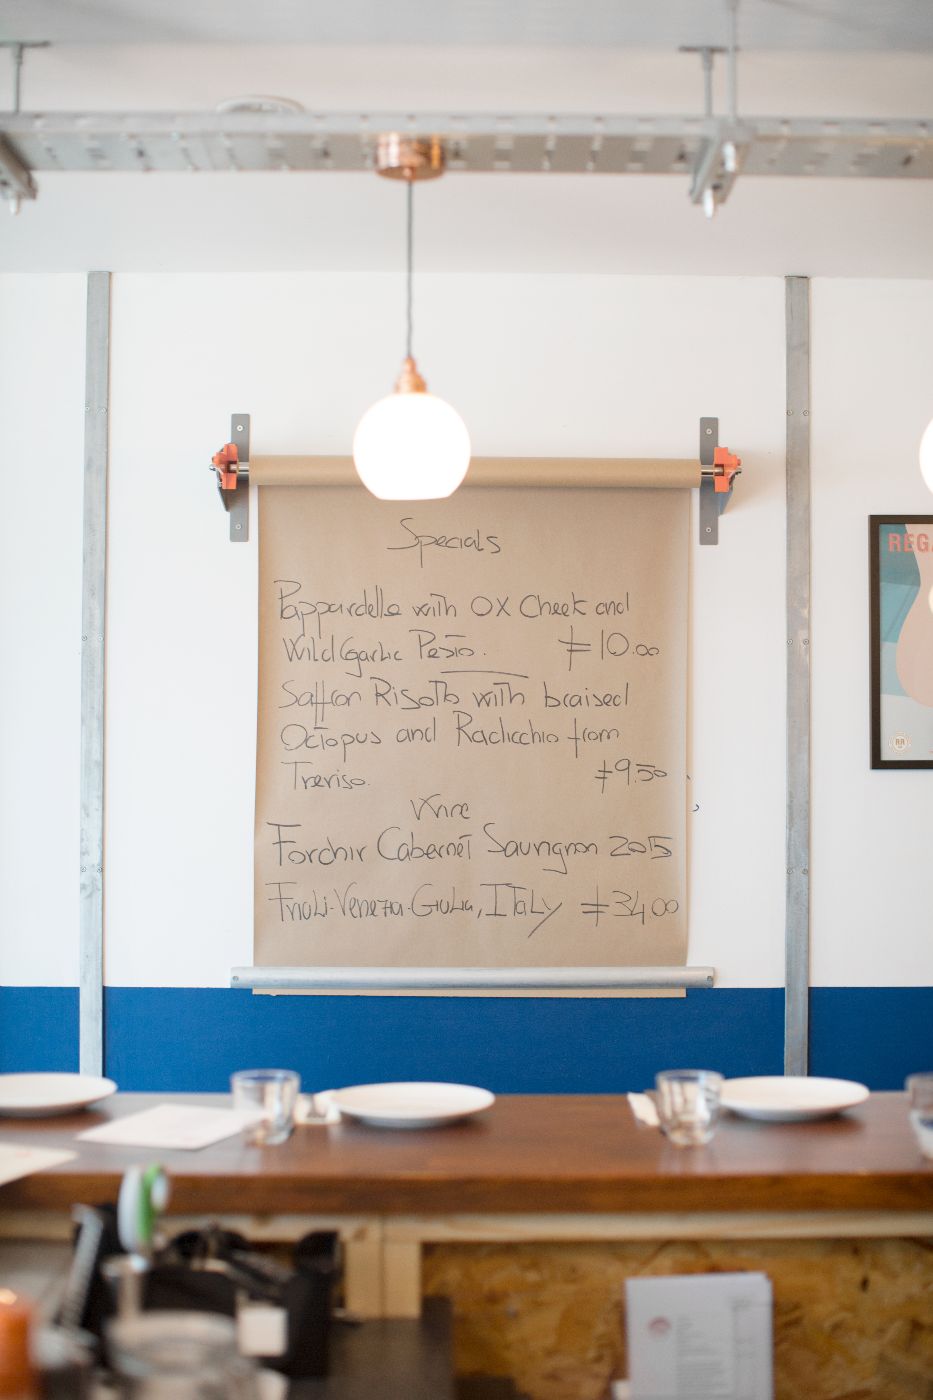 Specials
Pappardelle with OX Cheek and
Wild Garlic Pesto. £10.00
Saffron Risotto with braised
Octopus and Radicchio from
Treviso. £9.50
Wine
Forchir Cabernet Sauvignon 2015
Friuli-Venezia-Giulia, ITaLy £34.00
REGA
RR